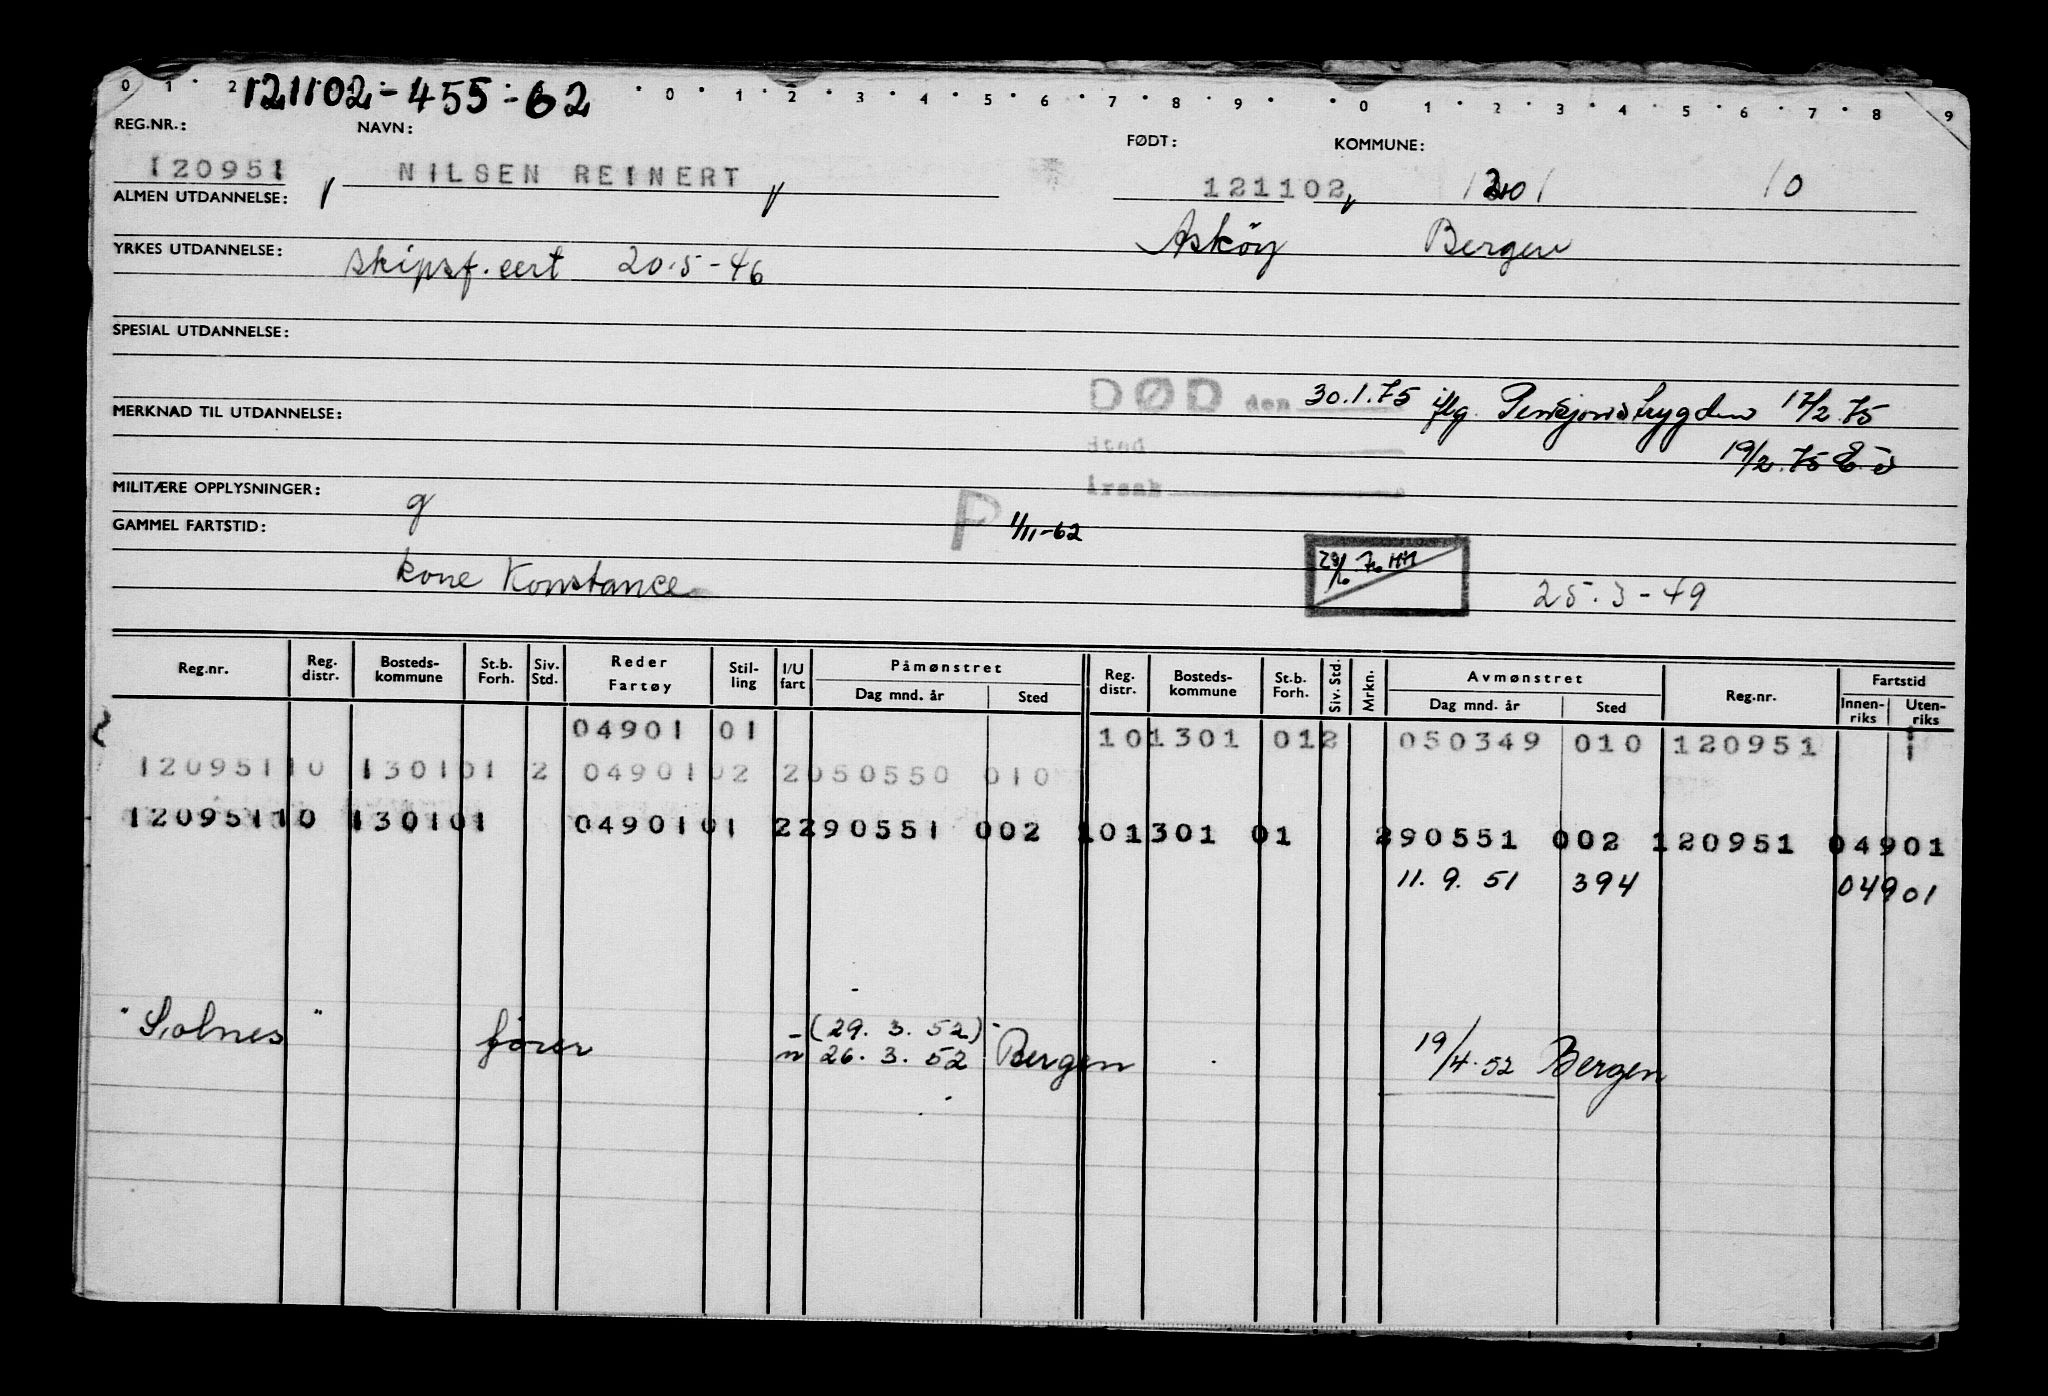 0 1 2 121102-455-62 0 1 2 3 4 5 6 7 8 9 0 1 2 3 4 5 6 7 8 9
REG.NR.: NAVN: FØDT: KOMMUNE:
120951 NILSEN REINERT 121102 1301 10
ALMEN UTDANNELSE:
Asköy Bergen
YRKES UTDANNELSE: skipsf.cert 20.5-46
SPESIAL UTDANNELSE:
DØD den 30.1.75 iflg. Pensjonstrygden 17/2.75
MERKNAD TIL UTDANNELSE:
Sted 19/2.75
Årsak
MILITÆRE OPPLYSNINGER: g
P 1/11-62
GAMMEL FARTSTID:
kone Konstance 25.3-49
Reg.nr. Reg. distr. Bosteds-kommune St.b. Forh. Siv. Std. Reder Fartøy Stil-ling I/U fart Påmønstret Dag mnd. år Sted Reg. distr. Bosteds-kommune St.b. Forh. Siv. Std. Mrkn. Avmønstret Dag mnd. år Sted Reg.nr. Fartstid Innen-riks Uten-riks
04901 01 101301 012 050349 010 120951
12095110 130101 2 0490102 2050550 010
12095110 130101 0490101 2290551 002 101301 01 290551 002 120951 04901
11. 9. 51 394 04901
"Solnes" (29. 3. 52)
fører 26. 3. 52 Bergen 19/4.52 Bergen